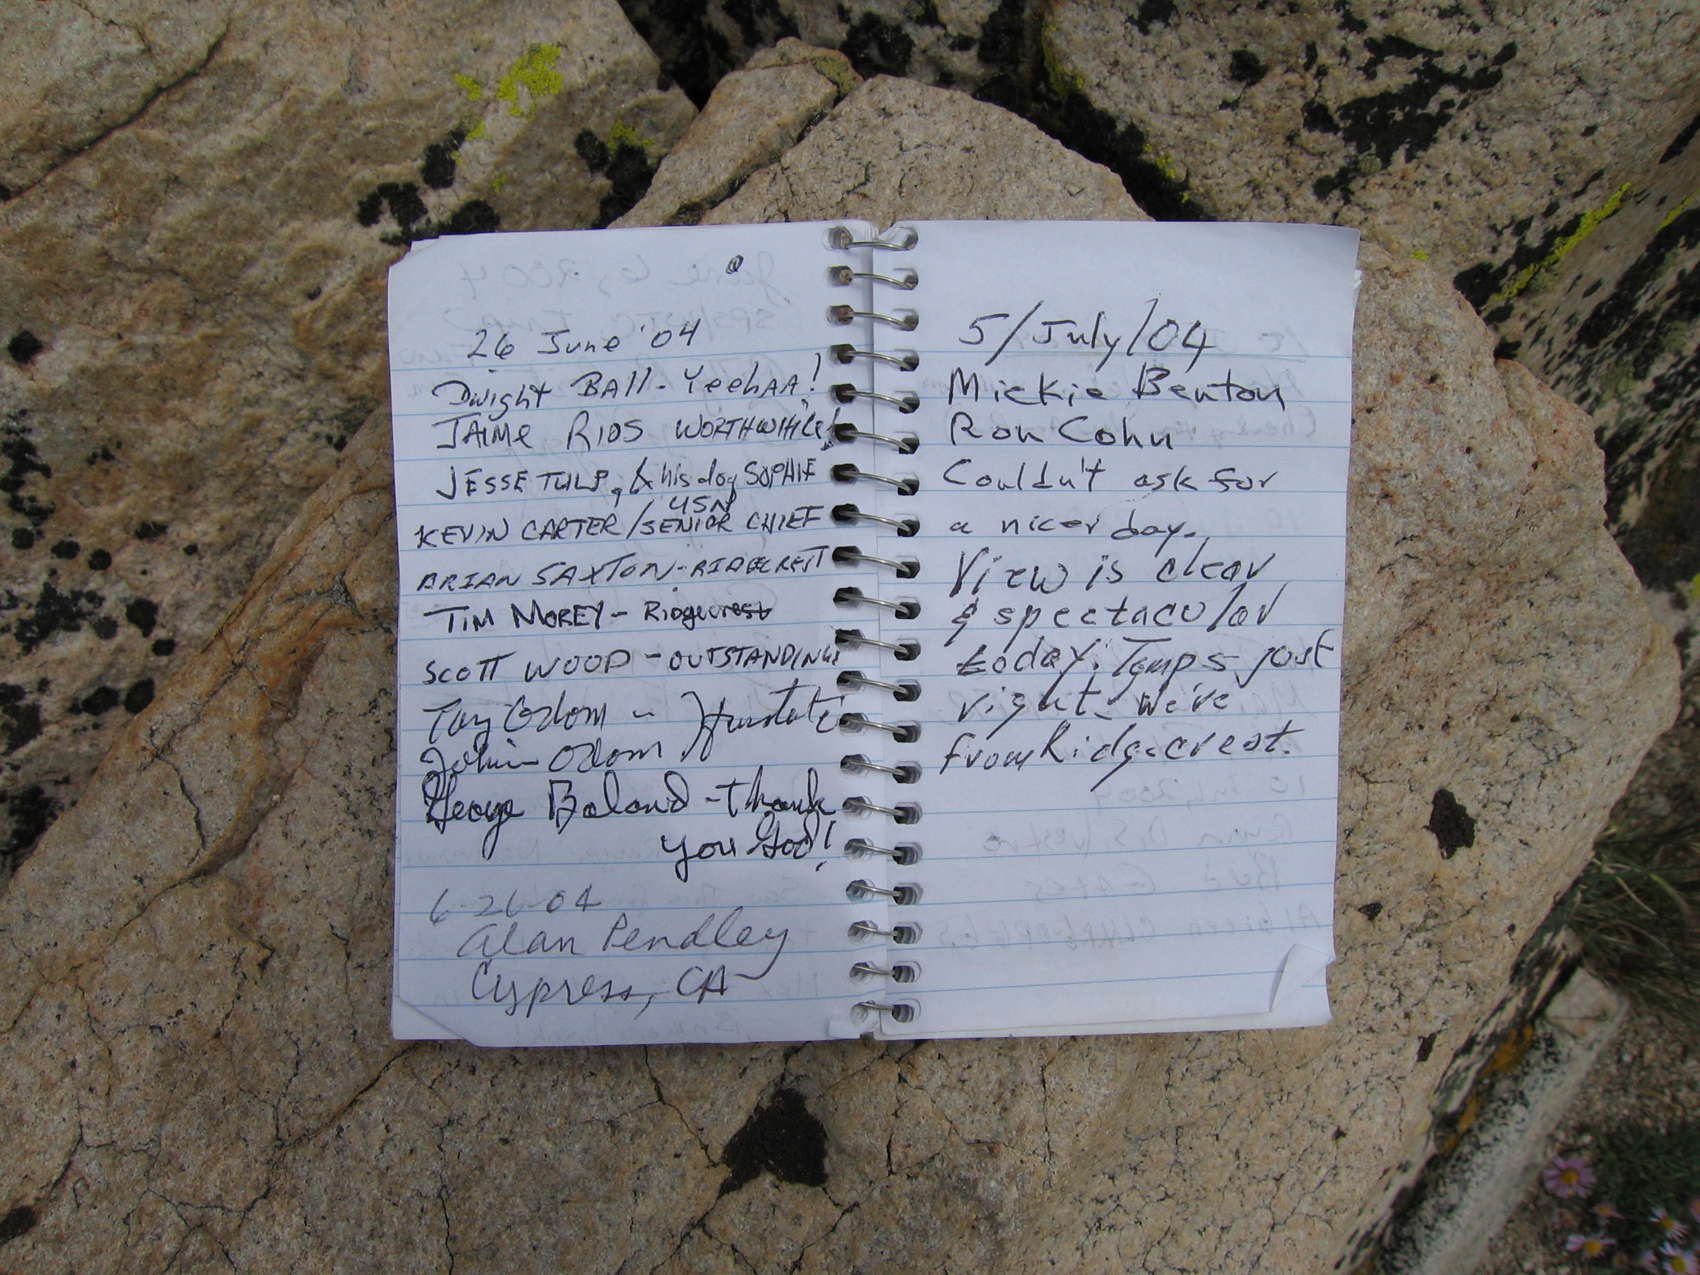 26 June '04
Dwight BAll - YeehAA!
JAIME RIOS WORTHWHILE!
JESSE TULP, & his dog SOPHIE
USN
KEVIN CARTER/SENIOR CHIEF
BRIAN SAXTON - RIDGECREST
TIM MOREY - Ridgecrest
SCOTT WOOD - OUTSTANDING
Odom -
John Odom
George Boland - Thank
you God!
6-26-04
Alan Pendley
Cypress, CA
5/July/04
Mickie Benton
Ron Cohn
Couldn't ask for
a nicer day.
View is clear
& spectacular
today. Temps just
right - we've
from Ridgecrest.